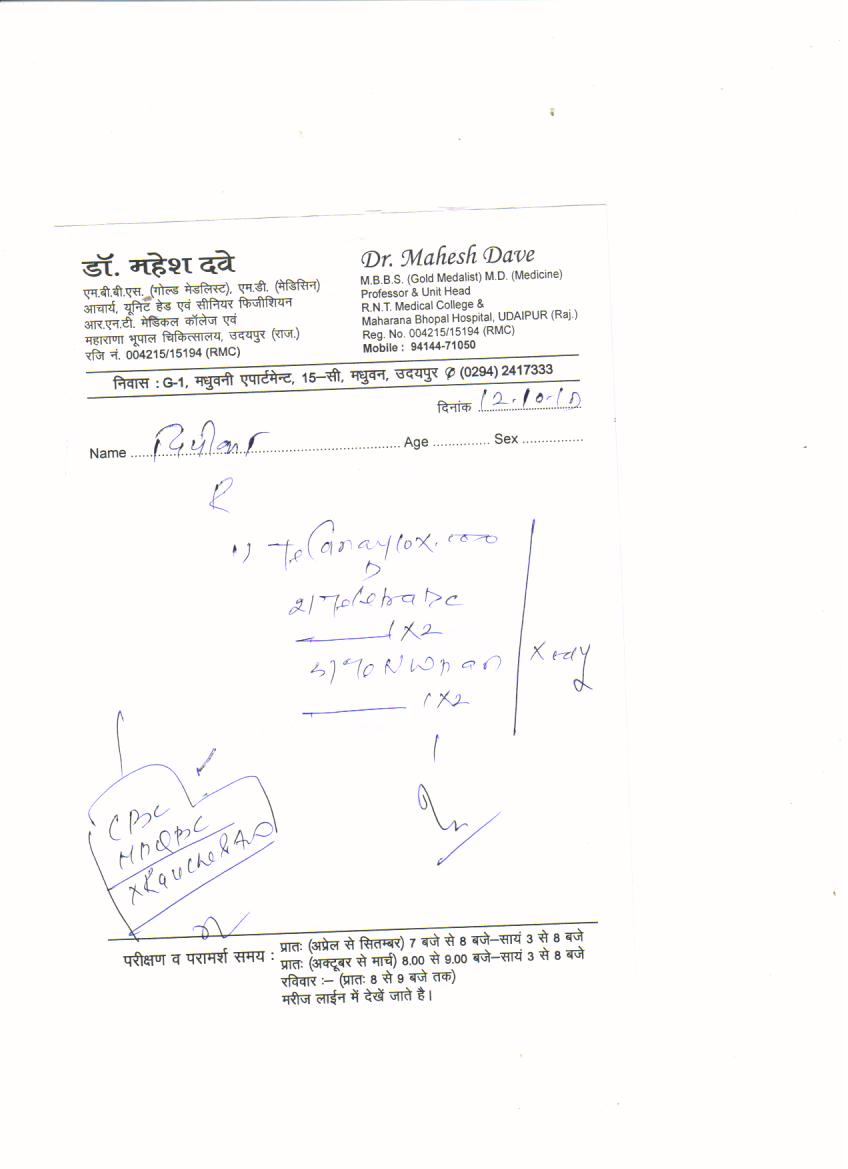 डॉ. महेश दवे
एम.बी.बी.एस. (गोल्ड मेडलिस्ट), एम.डी. (मेडिसिन)
आचार्य, यूनिट हेड एवं सीनियर फिजीशियन
आर.एन.टी. मेडिकल कॉलेज एवं
महाराणा भूपाल चिकित्सालय, उदयपुर (राज.)
रजि नं. 004215/15194 (RMC)
Dr. Mahesh Dave
M.B.B.S. (Gold Medalist) M.D. (Medicine)
Professor & Unit Head
R.N.T. Medical College &
Maharana Bhopal Hospital, UDAIPUR (Raj.)
Reg. No. 004215/15194 (RMC)
Mobile : 94144-71050
निवास : G-1, मधुवनी एपार्टमेन्ट, 15–सी, मधुवन, उदयपुर ✆ (0294) 2417333
दिनांक 12.10.10
Name Age Sex
R
1)
2)
1 X 2
3)
1 X 2
CBC
परीक्षण व परामर्श समय : प्रातः (अप्रेल से सितम्बर) 7 बजे से 8 बजे–सायं 3 से 8 बजे
प्रातः (अक्टूबर से मार्च) 8.00 से 9.00 बजे–सायं 3 से 8 बजे
रविवार :– (प्रातः 8 से 9 बजे तक)
मरीज लाईन में देखें जाते है।